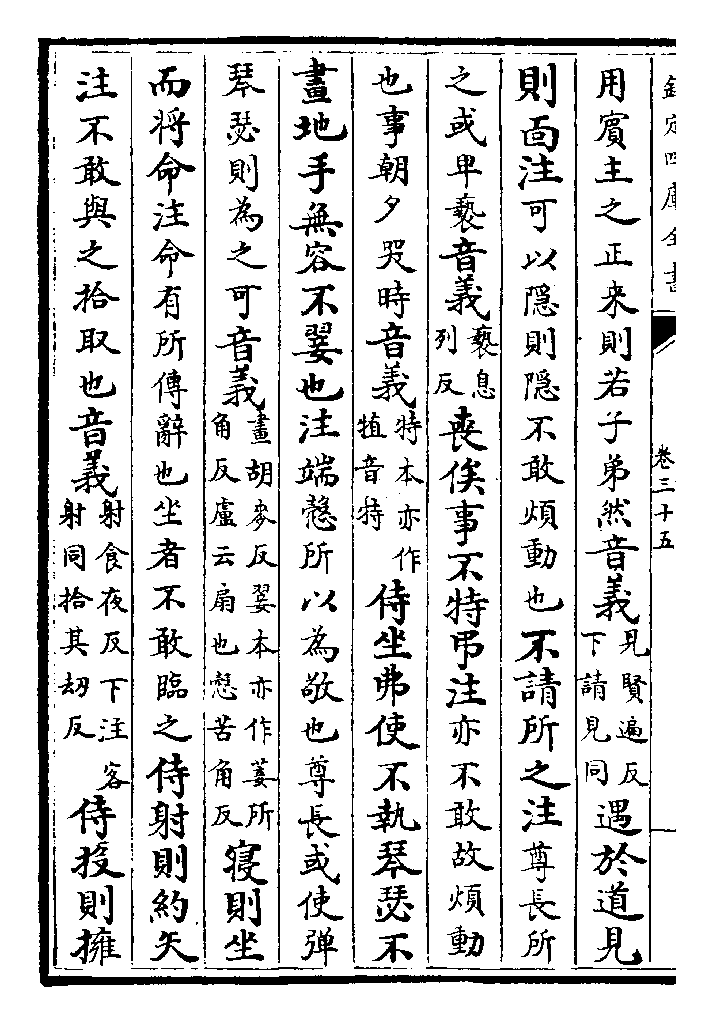 欽定四庫全書 卷三十五
用賓主之正来則若子弟然音義見賢遍反下請見同遇於道見
則面注可以隠則隠不敢煩動也不請所之注尊長所
之或卑䙝音義䙝息列反喪俟事不特弔注亦不敢故煩動
也事朝夕哭時音義特本亦作犆音特侍坐弗使不執琴瑟不
畫地手無容不翣也注端慤所以為敬也尊長或使弹
琴瑟則為之可音義畫胡麥反翣本亦作萐所角反盧云扇也慤苦角反寝則坐
而将命注命有所傳辭也坐者不敢臨之侍射則約矢
注不敢與之拾取也音義射食夜反下注客射同拾其刼反侍投則擁